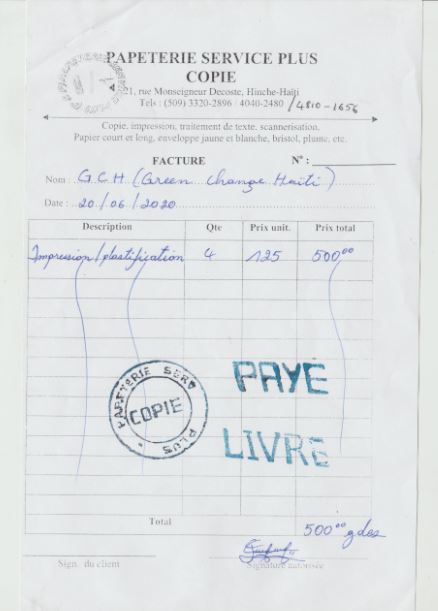 PAPETERIE SERVICE PLUS
COPIE
21, rue Monseigneur Decoste, Hinche-Haïti
Tels : (509) 3320-2896 / 4040-2480 / 4810-1656
Copie, impression, traitement de texte, scannerisation,
Papier court et long, enveloppe jaune et blanche, bristol, plume, etc.
FACTURE N° :
Nom : G C H (Green Change Haïti)
Date : 20/06/2020
Description Qte Prix unit. Prix total
Impression/plastification 4 125 500,00
PAPETERIE SERV PLUS
COPIE
PAYÉ
LIVRE
Total 500,00 gdes
Sign. du client Signature autorisée